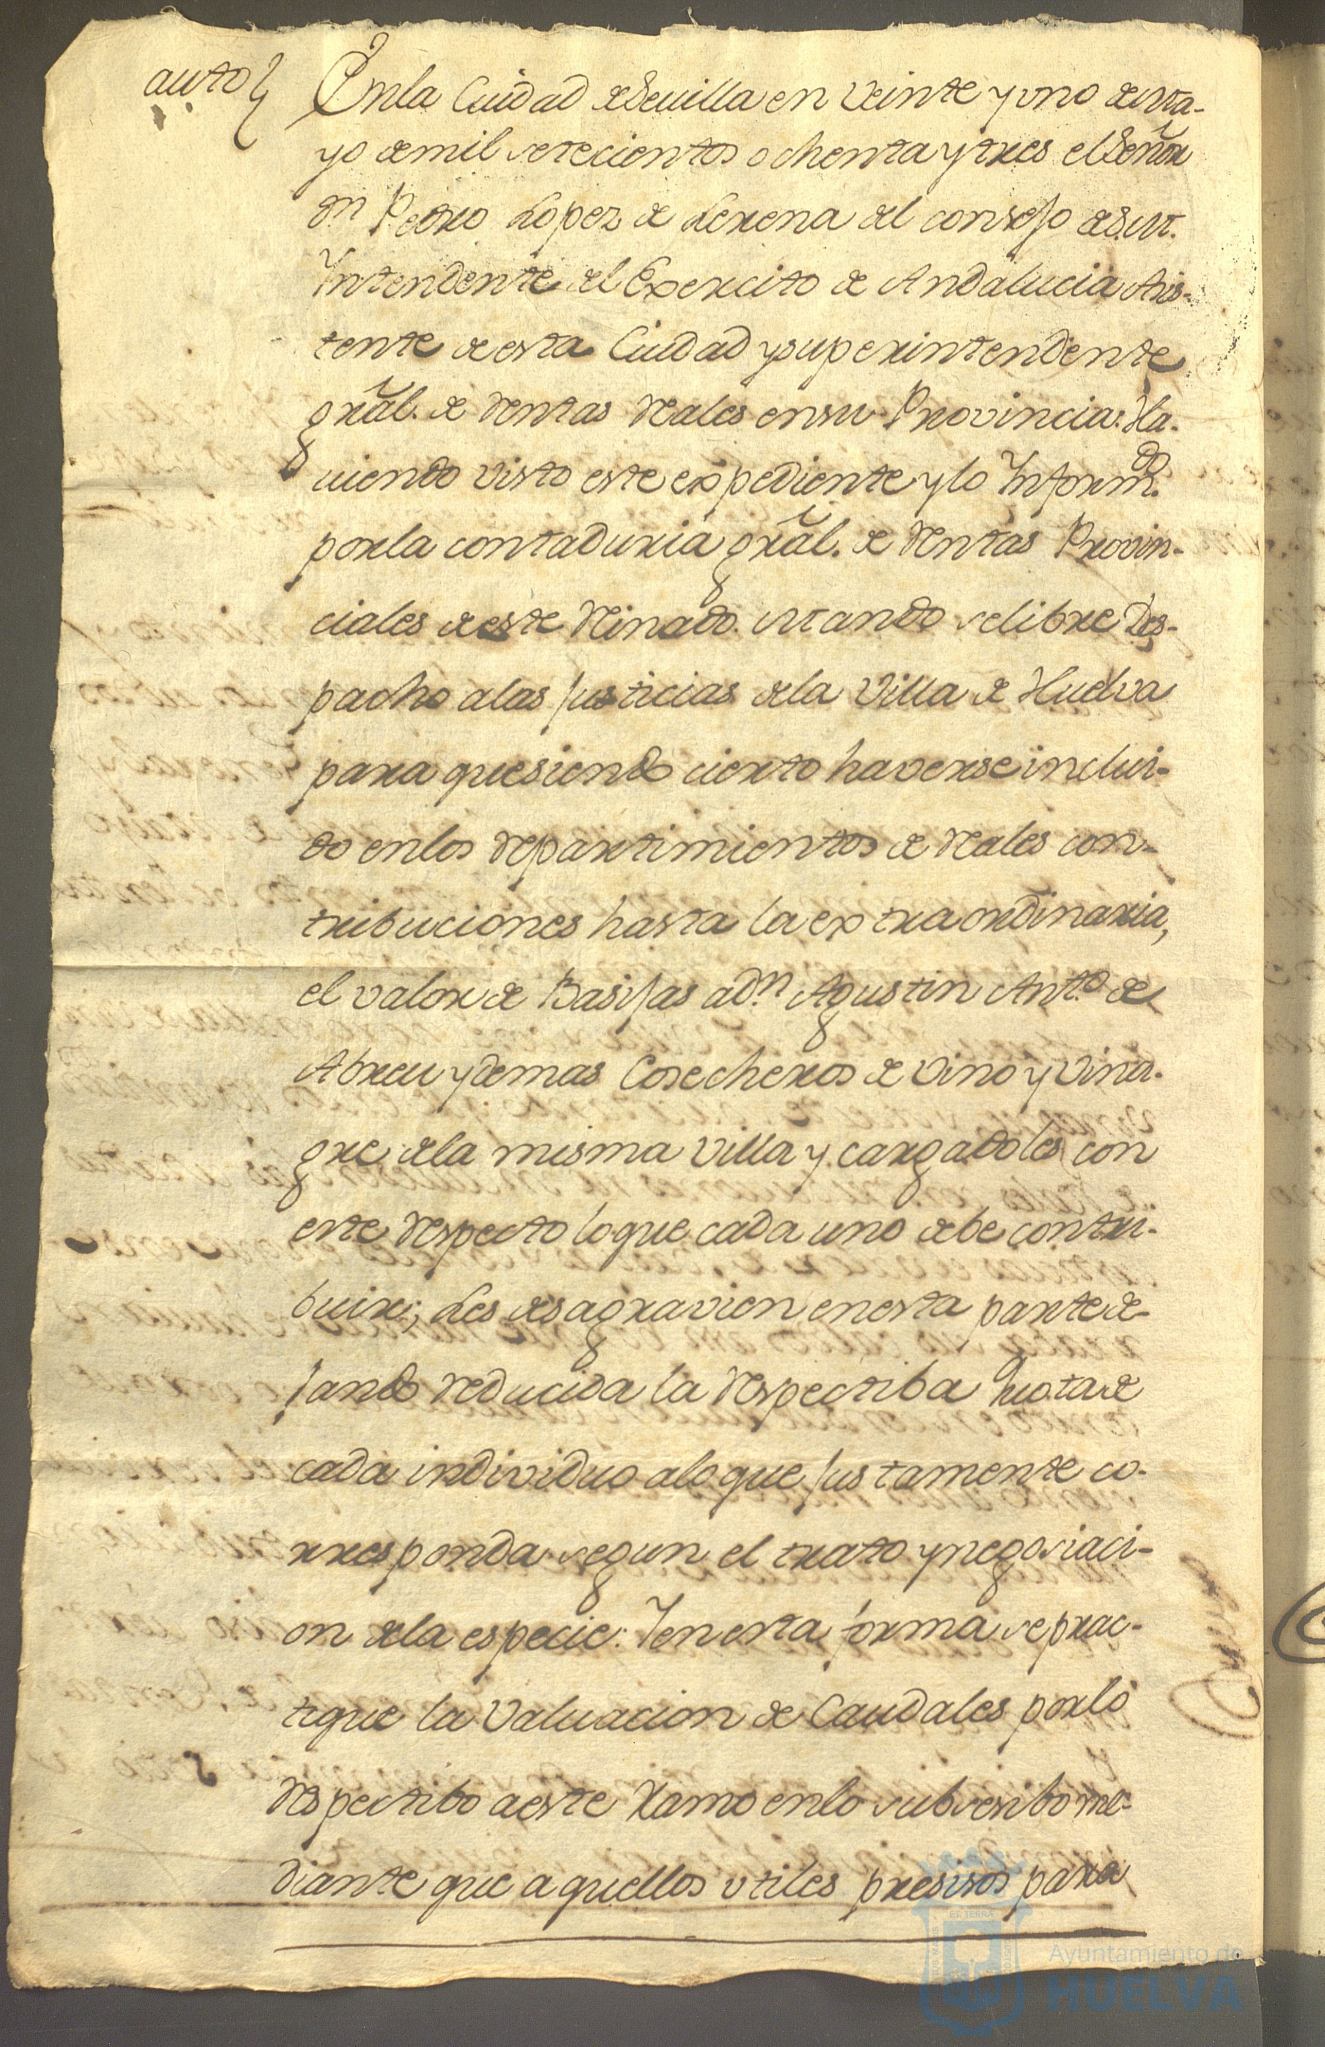 auto
Enla Ciudad deSevilla en Veinte y uno de Ma-
yo demil setecientos ochenta y tres el Señor
Dn Pedro Lopez de Lerena del consejo de S.M.
Yntendente del Exercito de Andalucia Asis-
tente de esta Ciudad y superintendente
gral. de Rentas Reales en su Provincia: Ha-
viendo visto este expediente y lo Ynformdo
por la contaduria gral. de Rentas Provin-
ciales de este Reinado. Mando se libre Des-
pacho a las Justicias dela Villa de Huelva
para que siendo cierto haverse inclui-
do en los repartimientos de Reales con-
tribuciones hasta la extraordinaria,
el valor de Basijas a Dn Agustin Anto de
Abreu y demas Cosecheros de Vino y Vina-
gre dela misma Villa y cargadoles con
este respecto lo que cada uno debe contri-
buir; Les desagravien en esta parte de-
jando reducida la respectiba quota de
cada individuo a lo que Justamente co-
rresponda segun el trato y negosiaci-
on dela especie: Y en esta forma se prac-
tique la Valuacion de Caudales por lo
respectibo a este Ramo en lo subsesibo me-
diante que a quellos utiles presisos para
Ayuntamiento de
HUELVA